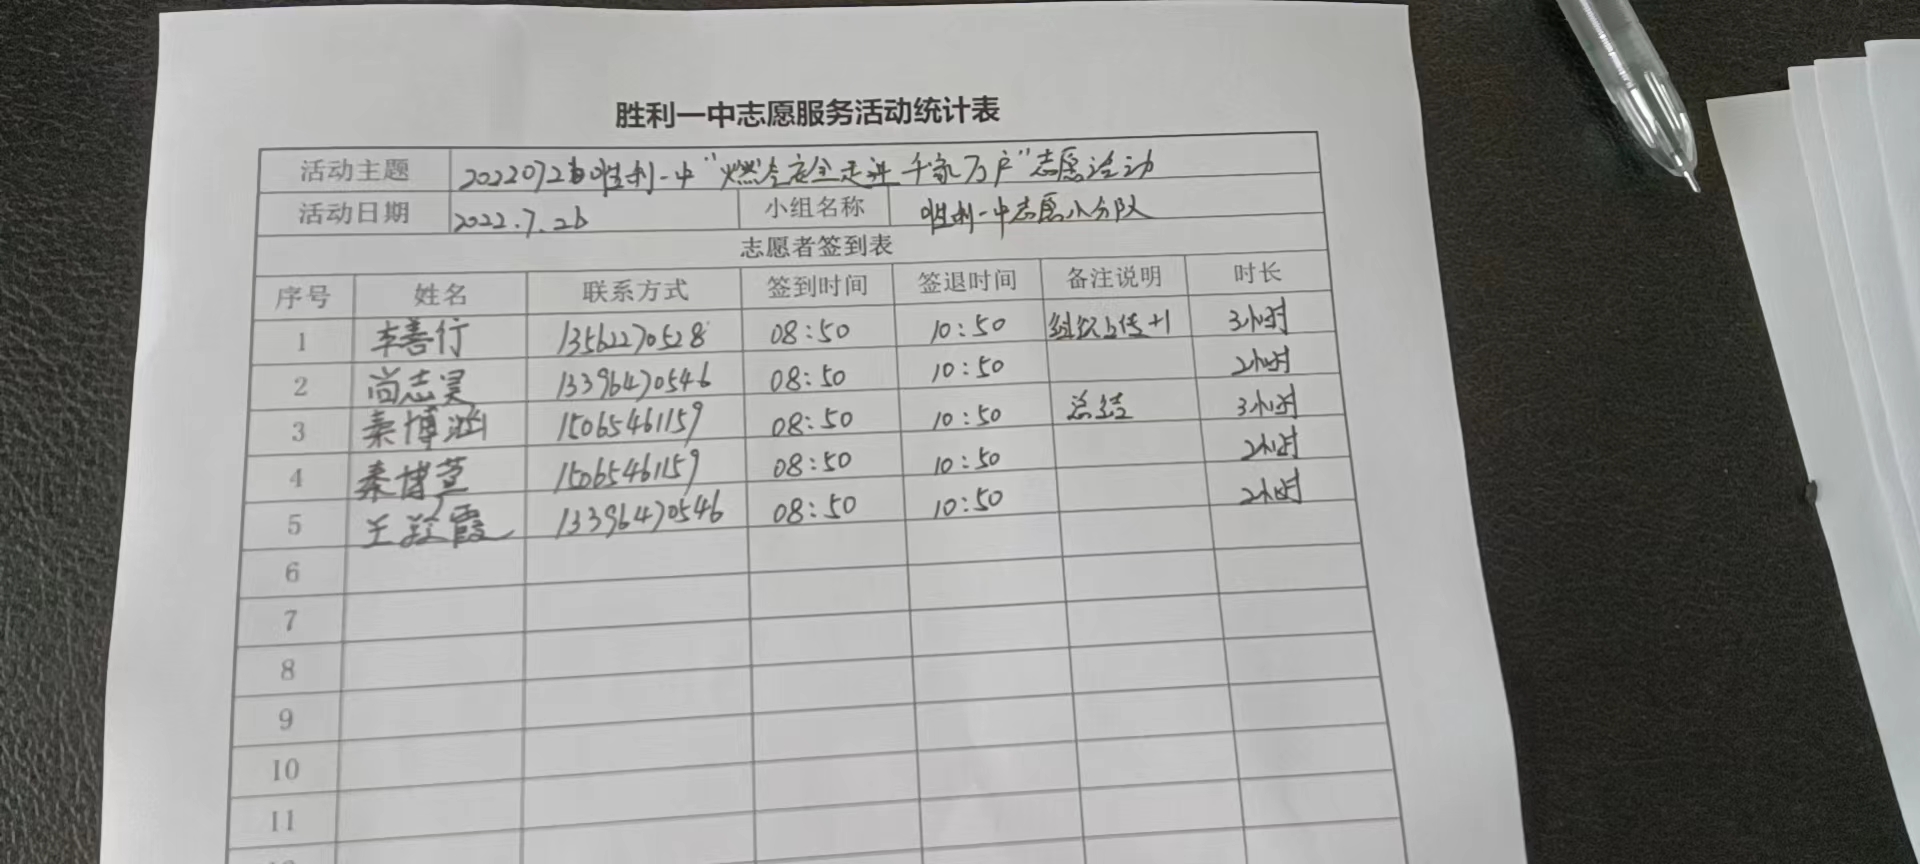 胜利一中志愿服务活动统计表
活动主题 20220726胜利一中“燃气安全走进千家万户”志愿活动
活动日期 2022.7.26 小组名称 胜利一中志愿小分队
志愿者签到表
序号 姓名 联系方式 签到时间 签退时间 备注说明 时长
1 李善行 13562270528 08:50 10:50 组织上传+1 3小时
2 尚志昊 13396470546 08:50 10:50 2小时
3 秦博涵 15065461159 08:50 10:50 总结 3小时
4 秦博萱 15065461159 08:50 10:50 2小时
5 王 霞 13396470546 08:50 10:50 2小时
6
7
8
9
10
11